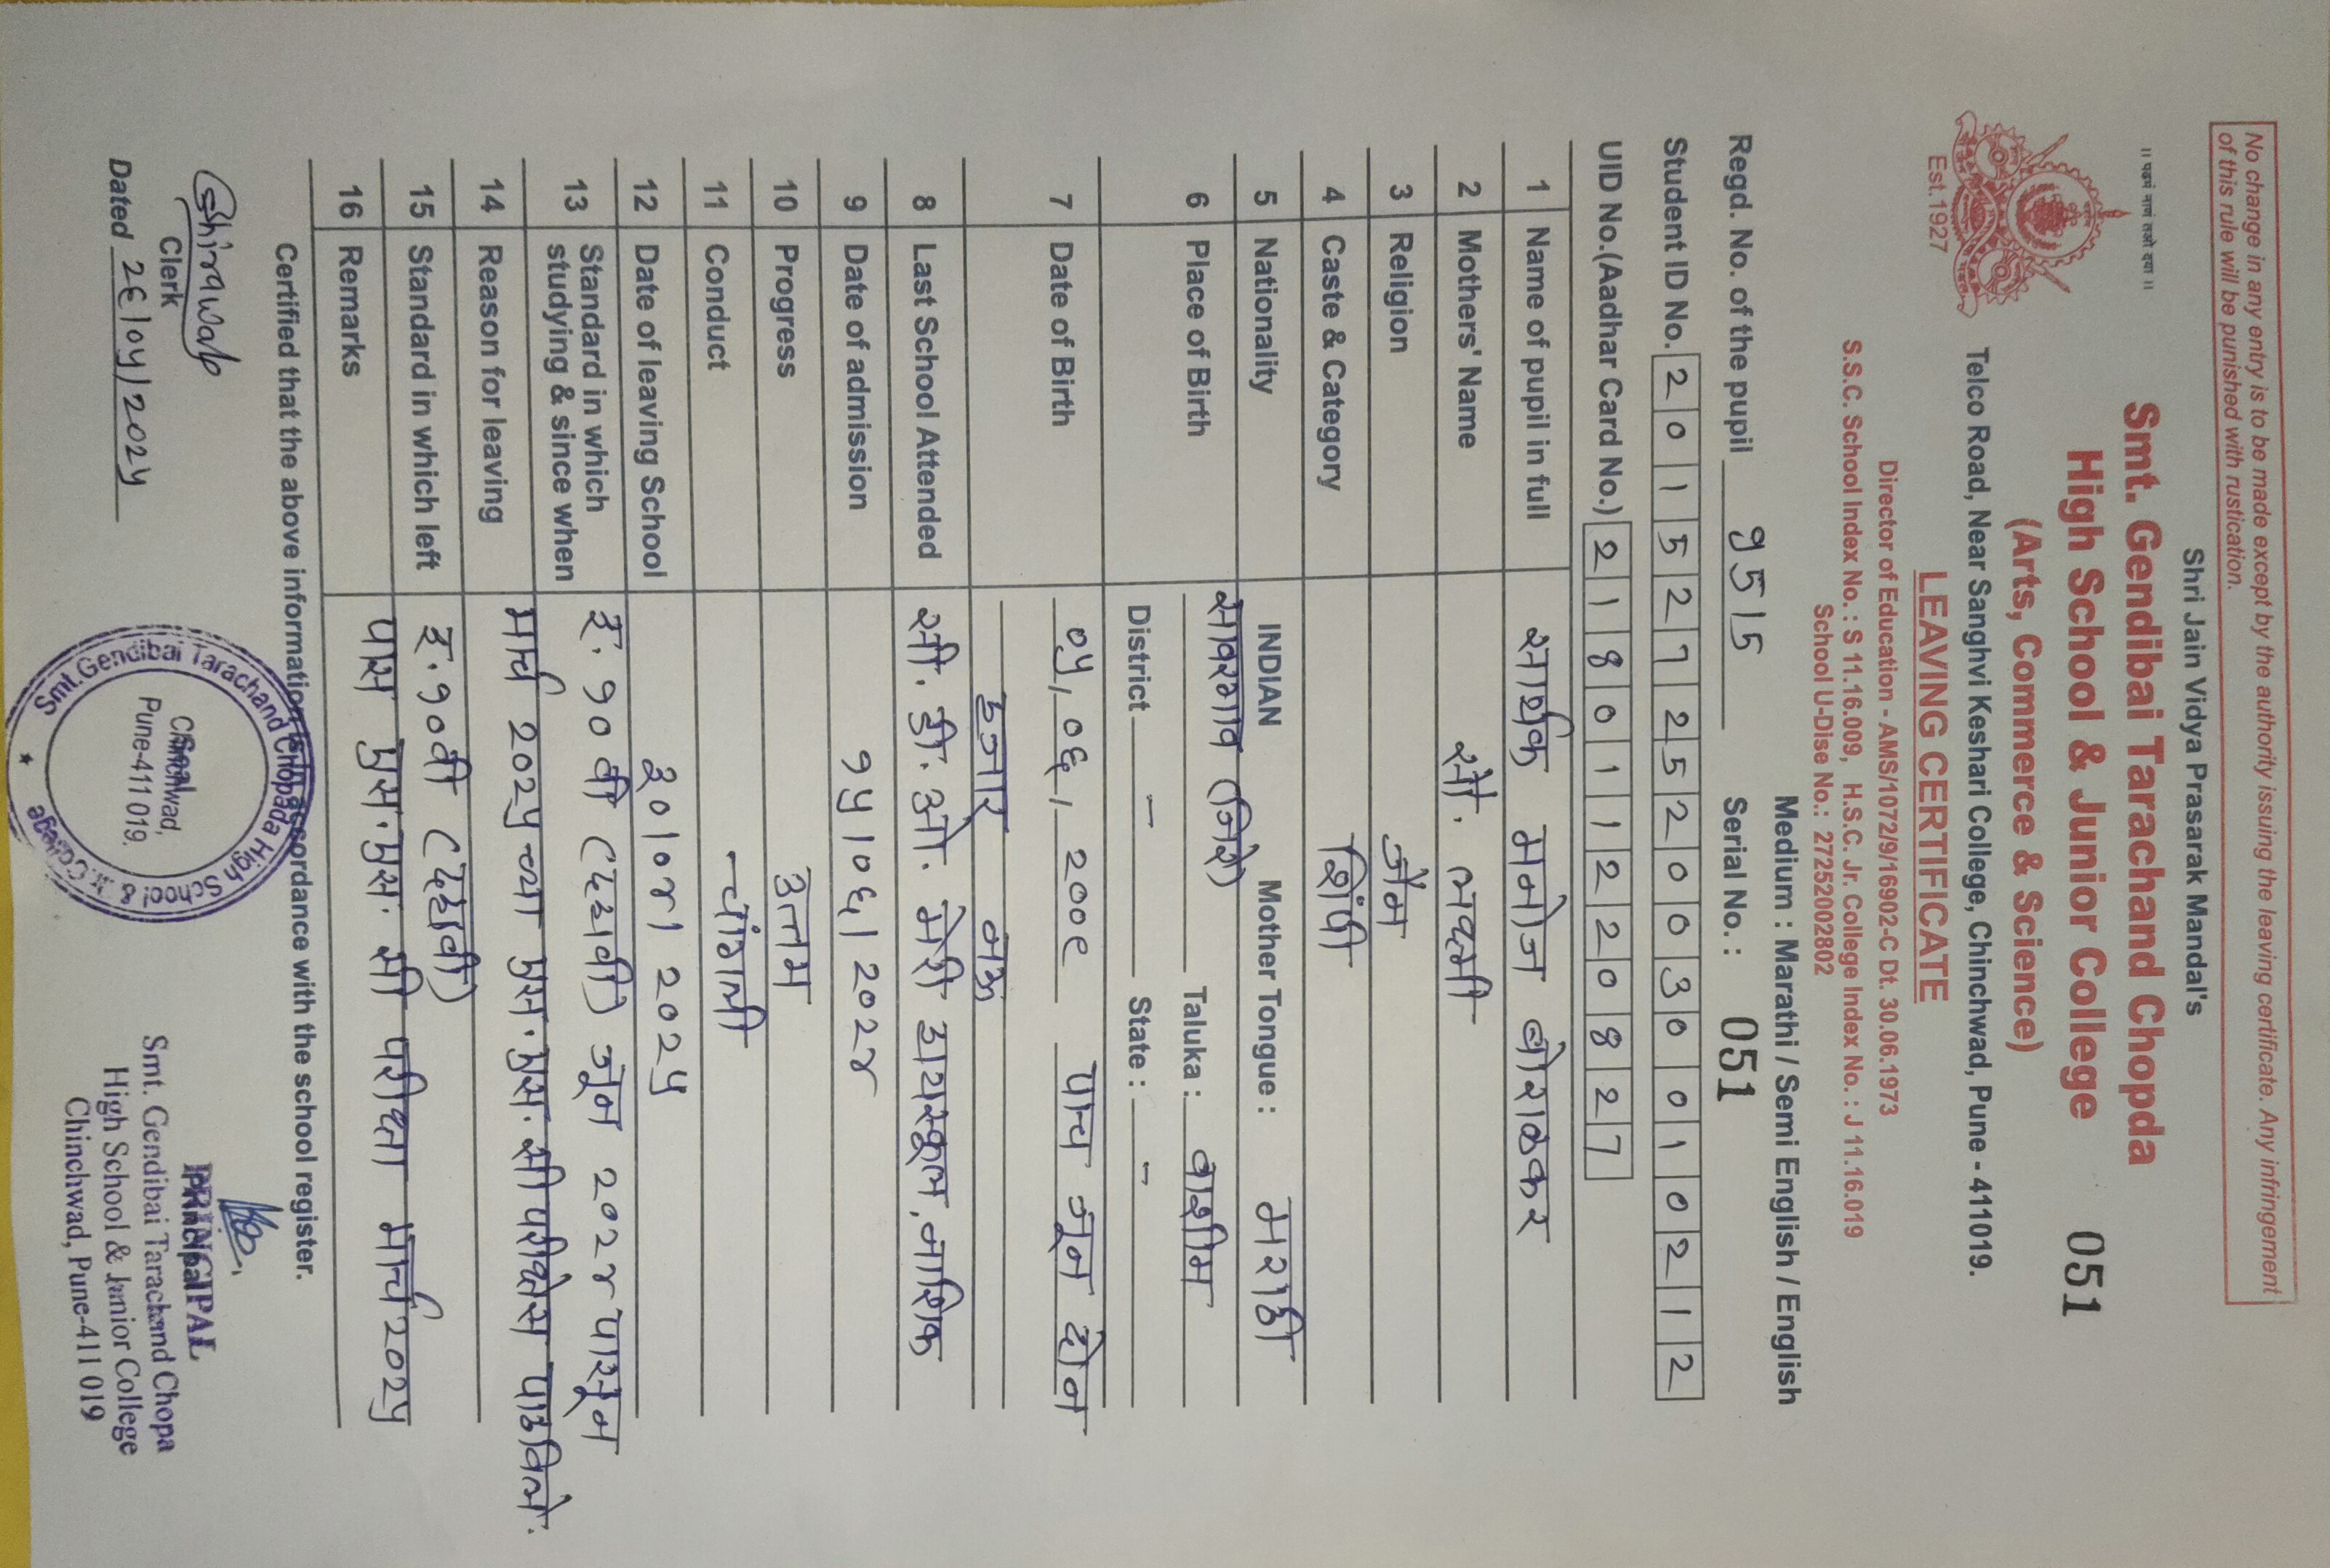 No change in any entry is to be made except by the authority issuing the leaving certificate. Any infringement
of this rule will be punished with rustication.
Shri Jain Vidya Prasarak Mandal's
Smt. Gendibai Tarachand Chopda
High School & Junior College 051
(Arts, Commerce & Science)
Telco Road, Near Sanghvi Keshari College, Chinchwad, Pune - 411019.
Est.1927
LEAVING CERTIFICATE
Director of Education - AMS/1072/9/16902-C Dt. 30.06.1973
S.S.C. School Index No. : S 11.16.009, H.S.C. Jr. College Index No. : J 11.16.019
School U-Dise No.: 27252002802
Medium : Marathi / Semi English / English
Regd. No. of the pupil 9515 Serial No. : 051
Student ID No. 2015272520030010212
UID No.(Aadhar Card No.) 218011220827
1 Name of pupil in full सार्थक मनोज बोराळकर
2 Mothers' Name सौ. लक्ष्मी
3 Religion जैन
4 Caste & Category शिंपी
5 Nationality INDIAN Mother Tongue : मराठी
6 Place of Birth सावरगाव (जिरे) Taluka : वाशीम
District - State : -
7 Date of Birth ०५/०६/२००९ पाच जून दोन
हजार नऊ
8 Last School Attended सी. डी. ओ. मेरी हायस्कूल, नाशिक
9 Date of admission १५/०६/२०२४
10 Progress उत्तम
11 Conduct चांगली
12 Date of leaving School ३०/०४/२०२५
13 Standard in which
studying & since when इ. १० वी (दहावी) जून २०२४ पासून
14 Reason for leaving मार्च २०२५ च्या एस.एस.सी परीक्षेस पाठविले.
15 Standard in which left इ. १०वी (दहावी)
16 Remarks पास एस.एस.सी परीक्षा मार्च २०२५
Certified that the above information is in accordance with the school register.
Clerk
Dated २९/०५/२०२५
Smt.Gendibai Tarachand Chopada High School & Jr.College
Chinchwad,
Pune-411 019.
PRINCIPAL
Smt. Gendibai Tarachand Chopa
High School & Junior College
Chinchwad, Pune-411 019